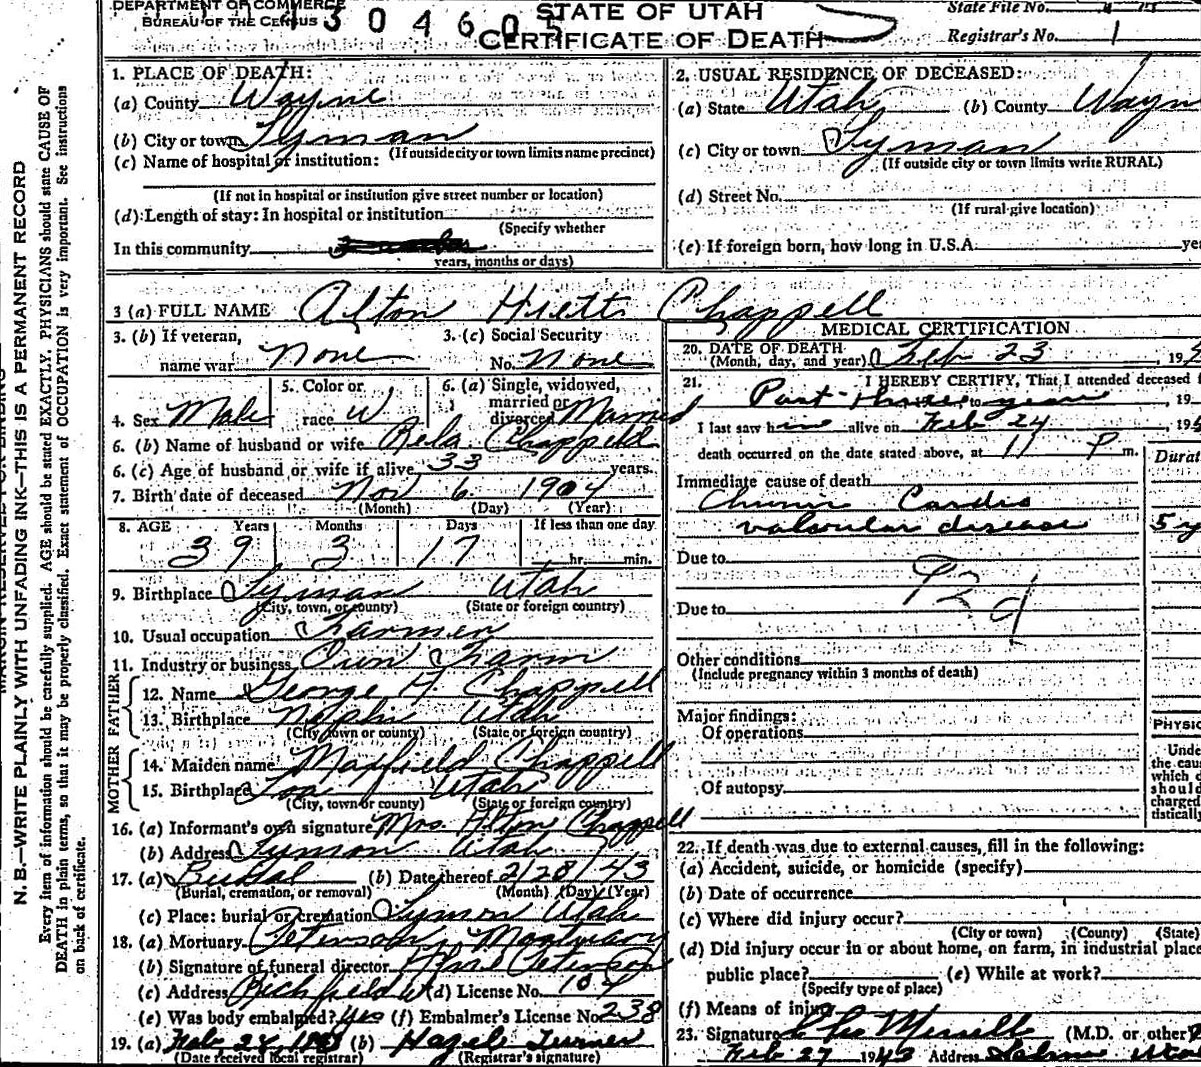 DEPARTMENT OF COMMERCE
BUREAU OF THE CENSUS
304605
STATE OF UTAH
CERTIFICATE OF DEATH
State File No.
Registrar's No. 1
N. B.—WRITE PLAINLY WITH UNFADING INK—THIS IS A PERMANENT RECORD
Every item of information should be carefully supplied. AGE should be stated EXACTLY. PHYSICIANS should state CAUSE OF
DEATH in plain terms, so that it may be properly classified. Exact statement of OCCUPATION is very important. See instructions
on back of certificate.
1. PLACE OF DEATH:
(a) County Wayne
(b) City or town Lyman
(If outside city or town limits name precinct)
(c) Name of hospital or institution:
(If not in hospital or institution give street number or location)
(d) Length of stay: In hospital or institution
(Specify whether
In this community
years, months or days)
2. USUAL RESIDENCE OF DECEASED:
(a) State Utah (b) County Wayn
(c) City or town Lyman
(If outside city or town limits write RURAL)
(d) Street No.
(If rural give location)
(e) If foreign born, how long in U.S.A. yea
3 (a) FULL NAME Alton Hiett Chappell
3. (b) If veteran, name war None
3. (c) Social Security No. None
4. Sex Male
5. Color or race W
6. (a) Single, widowed, married or divorced Married
6. (b) Name of husband or wife Rela Chappell
6. (c) Age of husband or wife if alive 33 years.
7. Birth date of deceased Nov 6 1904
(Month) (Day) (Year)
8. AGE Years Months Days If less than one day
39 3 17 hr. min.
9. Birthplace Lyman Utah
(City, town, or county) (State or foreign country)
10. Usual occupation Farmer
11. Industry or business Own Farm
FATHER
12. Name George H. Chappell
13. Birthplace Nephi Utah
(City, town or county) (State or foreign country)
MOTHER
14. Maiden name Maxfield Chappell
15. Birthplace Loa Utah
(City, town or county) (State or foreign country)
16. (a) Informant's own signature Mrs. Alton Chappell
(b) Address Lyman Utah
17. (a) Burial (b) Date thereof 2/28/43
(Burial, cremation, or removal) (Month) (Day) (Year)
(c) Place: burial or cremation Lyman Utah
18. (a) Mortuary Peterson Mortuary
(b) Signature of funeral director Peterson
(c) Address Richfield Ut (d) License No. 104
(e) Was body embalmed? Yes (f) Embalmer's License No. 238
19. (a) Feb 28, 1943 (b) Hazel Turner
(Date received local registrar) (Registrar's signature)
MEDICAL CERTIFICATION
20. DATE OF DEATH
(Month, day, and year) Feb 23, 194
21. I HEREBY CERTIFY, That I attended deceased f
Past three to years, 19
I last saw him alive on Feb 24, 194
death occurred on the date stated above, at 11 P m.
Durat
Immediate cause of death
Chronic Cardio
valvular disease 5 y
Due to
92d
Due to
Other conditions
(Include pregnancy within 3 months of death)
Major findings:
Of operations
Of autopsy
PHYSIC
Unde
the cau
which d
should
charged
tistically
22. If death was due to external causes, fill in the following:
(a) Accident, suicide, or homicide (specify)
(b) Date of occurrence
(c) Where did injury occur?
(City or town) (County) (State)
(d) Did injury occur in or about home, on farm, in industrial place
public place? (e) While at work?
(Specify type of place)
(f) Means of injury
23. Signature Merrell (M.D. or other)
Feb 27 1943 Address Salina Utah